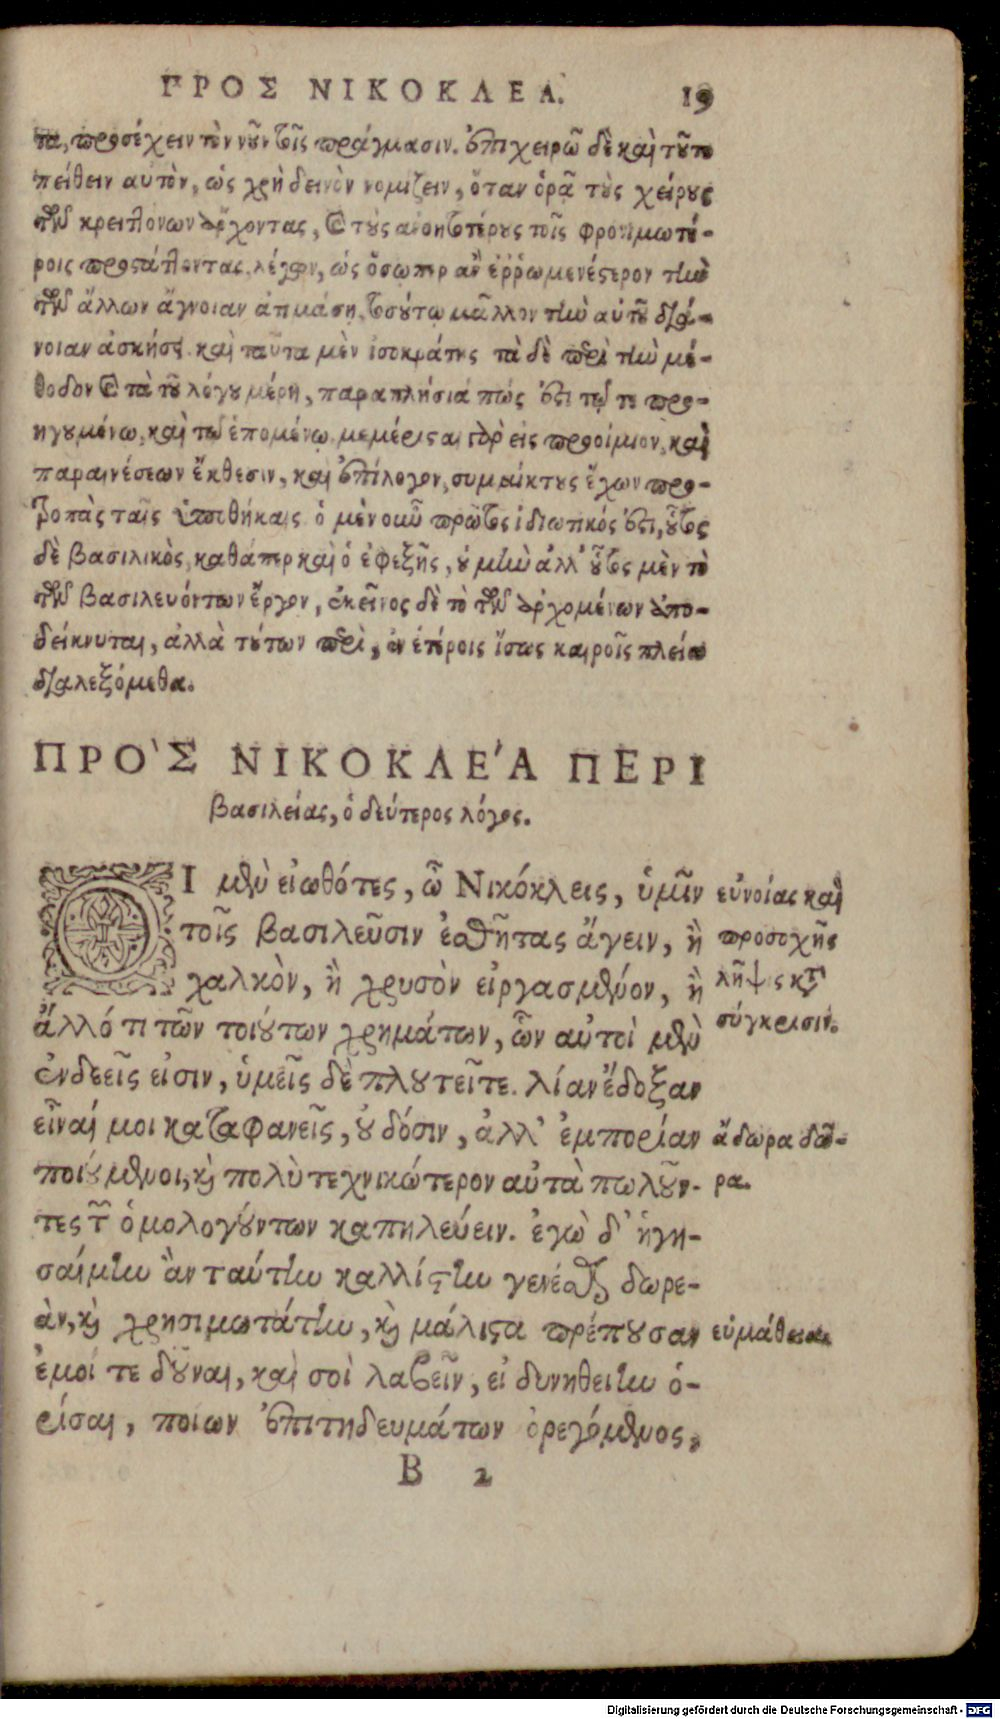 ΠΡΟΣ ΝΙΚΟΚΛΕΑ. 19
τα, προσέχειν τὸν νοῦν τοῖς πράγμασιν. ἐπιχειρῶ δὲ καὶ τοῦτο
πείθειν αὐτὸν, ὡς χρὴ δεινὸν νομίζειν, ὅταν ὁρᾷ τοὺς χείρους
τῶν κρειττόνων ἄρχοντας, καὶ τοὺς ἀνοητοτέρους τοῖς φρονιμωτέ-
ροις προστάττοντας. λέγων, ὡς ὅσωπερ ἂν ἐῤῥωμενέστερον τὴν
τῶν ἄλλων ἄγνοιαν ἀτιμάσῃ, τοσούτῳ μᾶλλον τὴν αὑτοῦ διά-
νοιαν ἀσκήσει. καὶ ταῦτα μὲν ἰσοκράτης τὰ δὲ περὶ τὴν μέ-
θοδον καὶ τὰ τοῦ λόγου μέρη, παραπλήσιά πώς ἐστι τῷ τε προ-
ηγουμένῳ, καὶ τῷ ἑπομένῳ. μεμέρισται γὰρ εἰς προοίμιον, καὶ
παραινέσεων ἔκθεσιν, καὶ ἐπίλογον, συμμίκτους ἔχων προ-
τροπὰς ταῖς ὑποθήκαις. ὁ μὲν οὖν πρῶτος ἰδιωτικός ἐστι, οὗτος
δὲ βασιλικὸς, καθάπερ καὶ ὁ ἐφεξῆς, οὐ μὴν ἀλλ' οὗτος μὲν τὸ
τῶν βασιλευόντων ἔργον, ἐκεῖνος δὲ τὸ τῶν ἀρχομένων ἀπο-
δείκνυται, ἀλλὰ τούτων περὶ, ἐν ἑτέροις ἴσως καιροῖς πλείω
διαλεξόμεθα.
ΠΡΟ`Σ ΝΙΚΟΚΛΕ'Α ΠΕΡΙ
βασιλείας, ὁ δεύτερος λόγος.
ΟΙ μὲν εἰωθότες, ὦ Νικόκλεις, ὑμῖν εὐνοίας καὶ
τοῖς βασιλεῦσιν ἐσθῆτας ἄγειν, ἢ προσοχῆς
χαλκὸν, ἢ χρυσὸν εἰργασμένον, ἢ λῆψις κτ
ἄλλό τι τῶν τοιούτων χρημάτων, ὧν αὐτοὶ μὲν σύγκρισιν.
ἐνδεεῖς εἰσιν, ὑμεῖς δὲ πλουτεῖτε. λίαν ἔδοξαν
εἶναί μοι καταφανεῖς, οὐ δόσιν, ἀλλ' ἐμπορίαν ἄδωρα δῶ-
ποιούμενοι, καὶ πολὺ τεχνικώτερον αὐτὰ πωλοῦν- ρα.
τες τῶν ὁμολογούντων καπηλεύειν. ἐγὼ δ' ἡγη-
σαίμην ἂν ταύτην καλλίστην γενέσθαι δωρε-
ὰν, καὶ χρησιμωτάτην, καὶ μάλιστα πρέπουσαν εὐμάθεια
ἐμοί τε δοῦναι, καὶ σοὶ λαβεῖν, εἰ δυνηθείην ὁ-
ρίσαι, ποίων ἐπιτηδευμάτων ὀρεγόμενος,
B 2
Digitalisierung gefördert durch die Deutsche Forschungsgemeinschaft - DFG